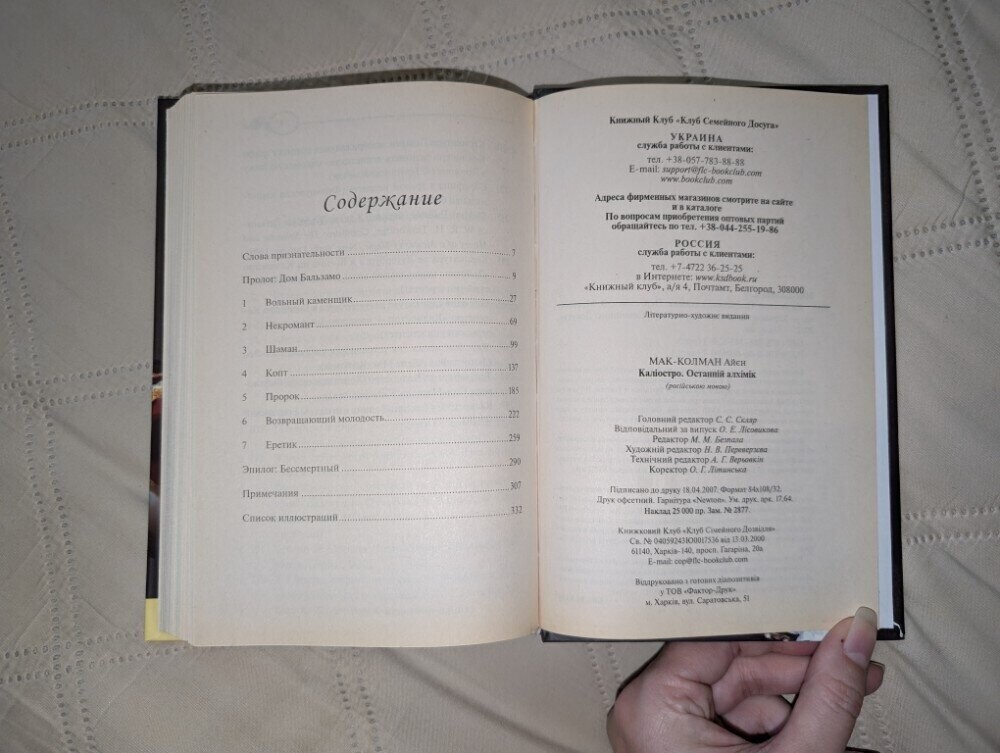 Содержание
Слова признательности 7
Пролог: Дом Бальзамо 9
1 Вольный каменщик 27
2 Некромант 69
3 Шаман 99
4 Копт 137
5 Пророк 185
6 Возвращающий молодость 222
7 Еретик 259
Эпилог: Бессмертный 290
Примечания 307
Список иллюстраций 332
Книжный Клуб «Клуб Семейного Досуга»
УКРАИНА
служба работы с клиентами:
тел. +38-057-783-88-88
E-mail: support@flc-bookclub.com
www.bookclub.com
Адреса фирменных магазинов смотрите на сайте
и в каталоге
По вопросам приобретения оптовых партий
обращайтесь по тел. +38-044-255-19-86
РОССИЯ
служба работы с клиентами:
тел. +7-4722 36-25-25
в Интернете: www.ksdbook.ru
«Книжный клуб», а/я 4, Почтамт, Белгород, 308000
Літературно-художнє видання
МАК-КОЛМАН Айєн
Каліостро. Останній алхімік
(російською мовою)
Головний редактор С. С. Скляр
Відповідальний за випуск О. Е. Лісовикова
Редактор М. М.
Художній редактор Н. В. Переверзєва
Технічний редактор А. Г. Верьовкін
Коректор О. Г. Літинська
Підписано до друку 18.04.2007. Формат 84x108/32.
Друк офсетний. Гарнітура «Newton». Ум. друк. арк. 17,64.
Наклад 25 000 пр. Зам. № 2877.
Книжковий Клуб «Клуб Сімейного Дозвілля»
Св. № 04059243Ю0017536 від 13.03.2000
61140, Харків-140, просп. Гагаріна, 20а
E-mail: cop@flc-bookclub.com
Віддруковано з готових діапозитивів
у ТОВ «Фактор-Друк»
м. Харків, вул. Саратовська, 51